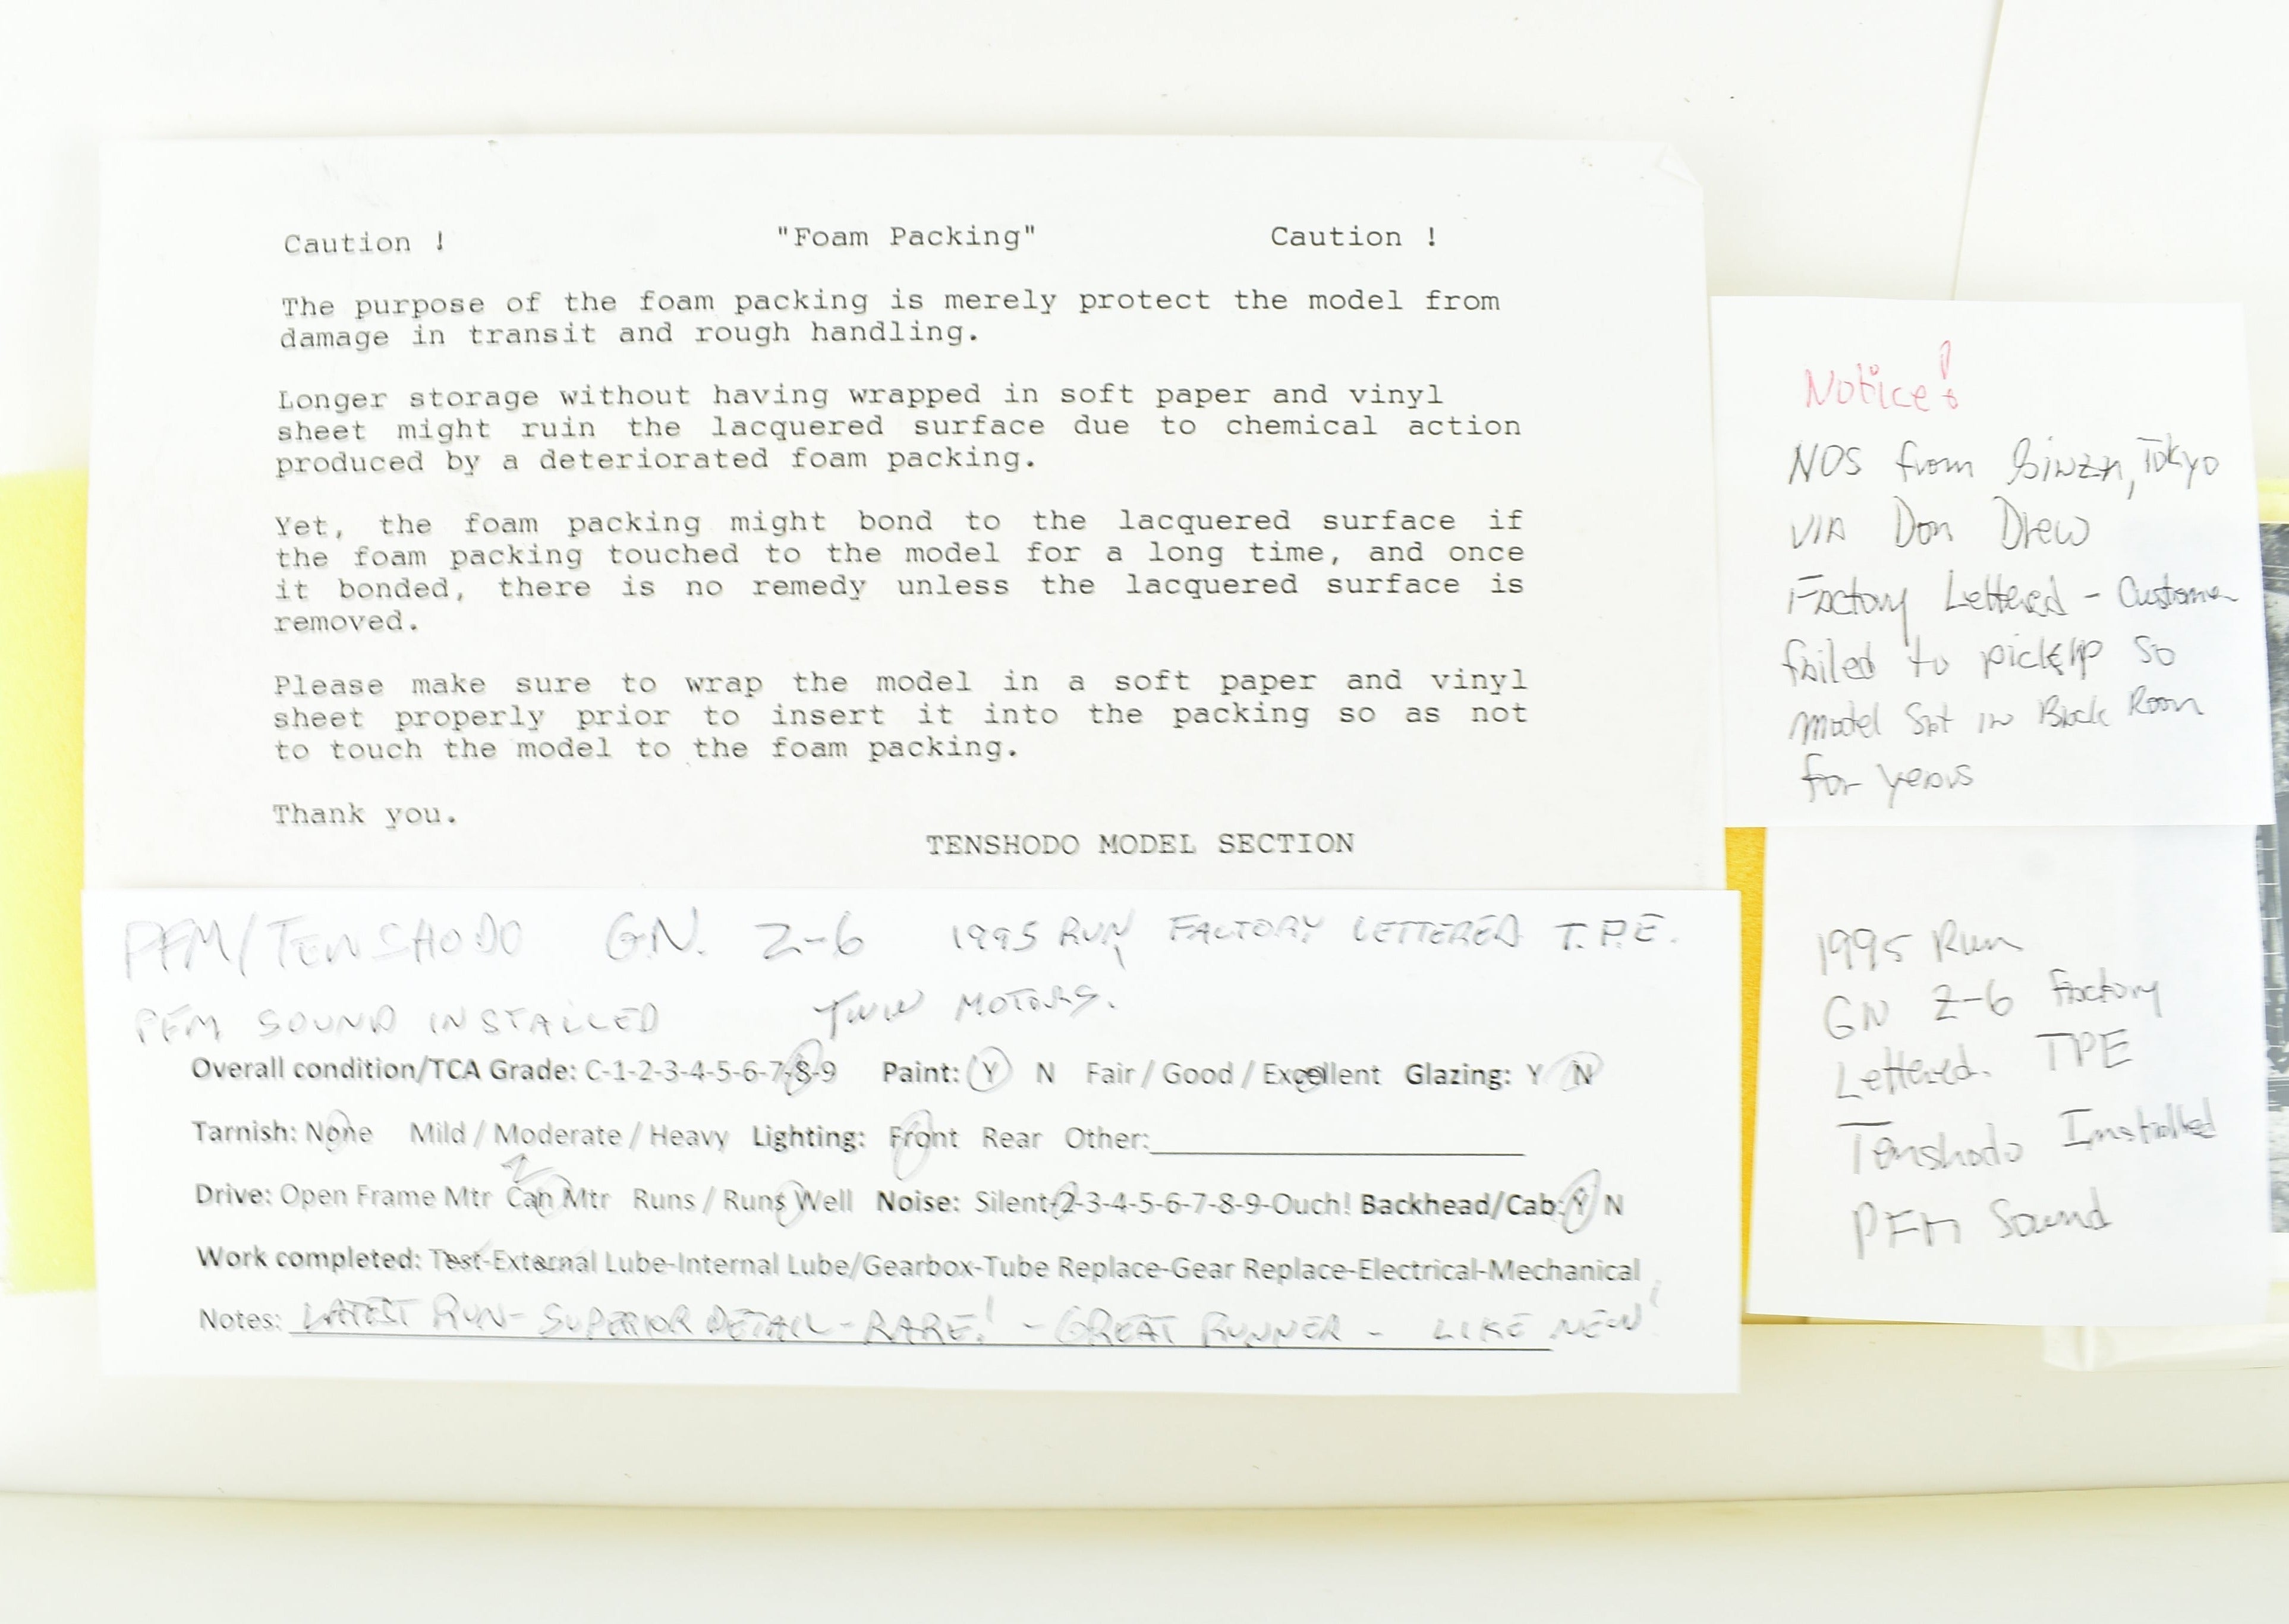 Caution ! "Foam Packing" Caution !
The purpose of the foam packing is merely protect the model from
damage in transit and rough handling.
Longer storage without having wrapped in soft paper and vinyl
sheet might ruin the lacquered surface due to chemical action
produced by a deteriorated foam packing.
Yet, the foam packing might bond to the lacquered surface if
the foam packing touched to the model for a long time, and once
it bonded, there is no remedy unless the lacquered surface is
removed.
Please make sure to wrap the model in a soft paper and vinyl
sheet properly prior to insert it into the packing so as not
to touch the model to the foam packing.
Thank you.
TENSHODO MODEL SECTION
PFM/TENSHODO G.N. Z-6 1995 RUN FACTORY LETTERED T.P.E.
PFM SOUND INSTALLED TWIN MOTORS.
Overall condition/TCA Grade: C-1-2-3-4-5-6-7-8-9 Paint: Y N Fair / Good / Excellent Glazing: Y N
Tarnish: None Mild / Moderate / Heavy Lighting: Front Rear Other:
2
Drive: Open Frame Mtr Can Mtr Runs / Runs Well Noise: Silent-2-3-4-5-6-7-8-9-Ouch! Backhead/Cab: Y N
Work completed: Test-External Lube-Internal Lube/Gearbox-Tube Replace-Gear Replace-Electrical-Mechanical
Notes: LATEST RUN- SUPERIOR DETAIL- RARE! - GREAT RUNNER - LIKE NEW!
Notice!
NOS from Ginza, Tokyo
VIA Don Drew
Factory Lettered - Customer
failed to pickup so
model Sat in Back Room
for years
1995 Run
GN Z-6 Factory
Lettered. TPE
Tenshodo Installed
PFM Sound